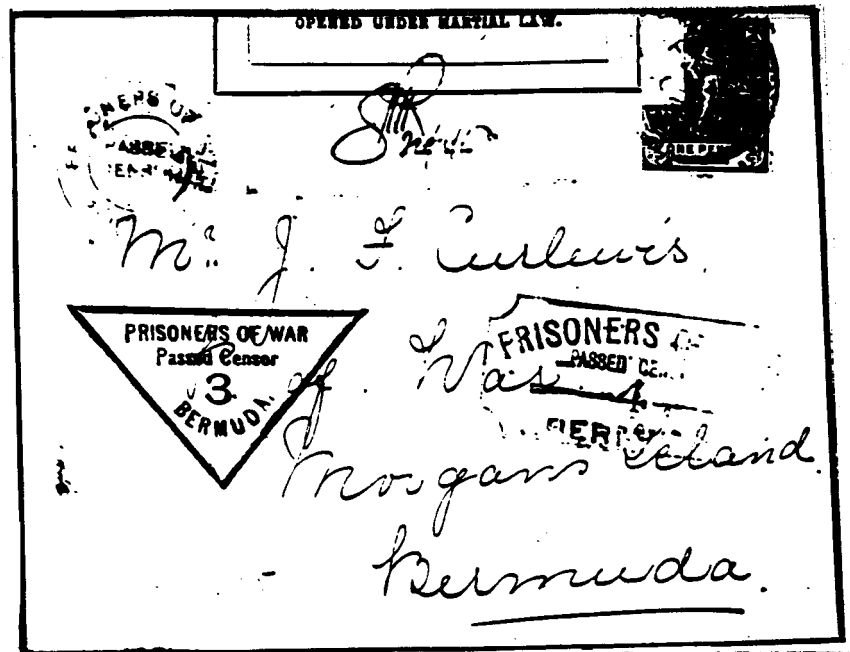 OPENED UNDER MARTIAL LAW.
ONE PEN
Mr. J. F. Curlewis.
PRISONERS OF WAR
Passed Censor
3
BERMUDA.
PRISONERS
PASSED CE
4
BER
of War
Morgans Island.
Bermuda.